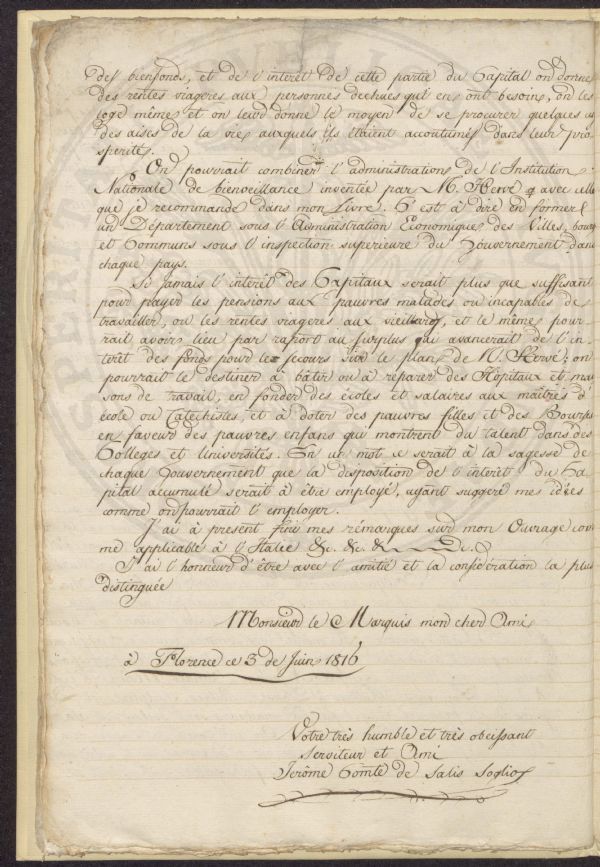 des bienfonds, et de l'interèt de cette partie du Capital on donne
des rentes viageres aux personnes dechues qui en ont besoin, on les
loge même, et on leur donne le moyen de se procurer quelques
des aises de la vie, auxquels ils étaient accoutumés dans leur pro-
sperité.
On pourrait combiner l'administration de l'Institution
Nationale de bienveillance inventée par M. Hervé, avec celle
que je recommande dans mon Livre. C'est à dire en former
un Département sous l'Administration Economique des Villes, bourgs
et Communs sous l'inspection superieure du Gouvernement dans
chaque pays.
Si jamais l'interèt des Capitaux serait plus que suffisant
pour payer les pensions aux pauvres malades ou incapables de
travailler, ou les rentes viageres aux vieillards, et le même pour-
rait avoir lieu par raport au surplus qui avancerait de l'in-
terèt des fonds pour les secours via le plan de M. Hervé: on
pourrait le destiner à bâtir ou à reparer des Hôpitaux et mai
sons de travail, en fonder des écoles et salaires aux maîtres d'
école ou Catechistes, et à doter des pauvres filles et des Bourses
en faveur des pauvres enfans qui montrent du talent dans des
Colleges et Universités. En un mot ce serait à la sagesse de
chaque Gouvernement que la disposition de l'interèt du Ca-
pital accumulé serait à être employé, ayant suggeré mes idées
comme on pourrait l'employer.
J'ai à present fini mes rémarques sur mon Ouvrage com
me applicable à l'Italie &c. &c. &c.
J'ai l'honneur d'être avec l'amitié et la considération la plus
distinguée
Monsieur le Marquis mon cher Ami
à Florence ce 3 de Juin 1816
Votre très humble et très obeissant
serviteur et Ami
Jerôme Comte de Salis Soglio